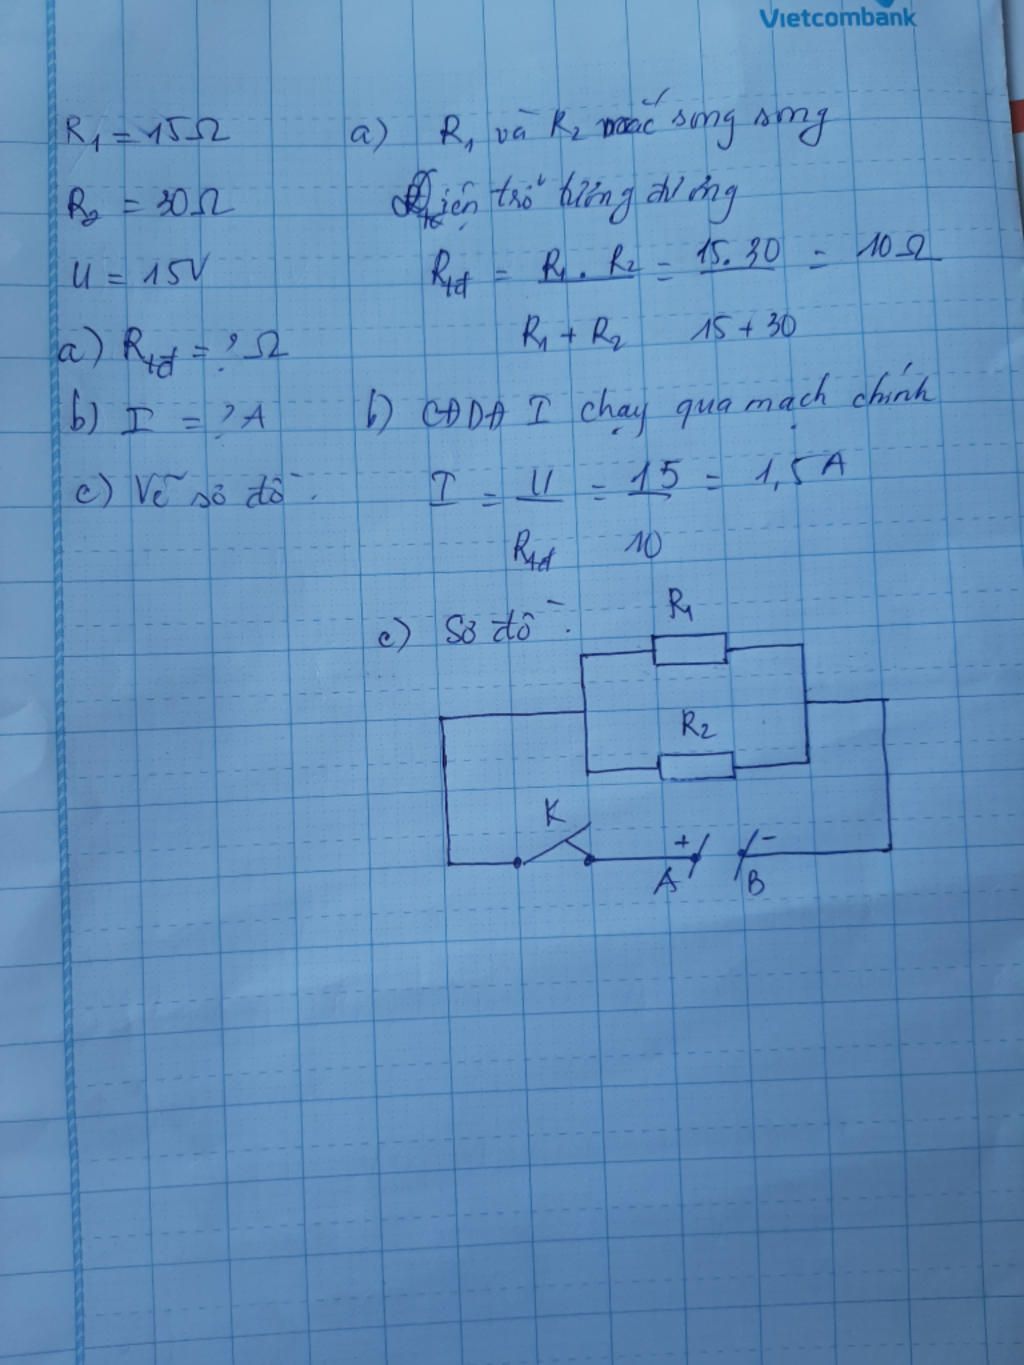 Vietcombank
R₁ = 15Ω
R₂ = 30Ω
U = 15V
a) Rtđ = ? Ω
b) I = ? A
c) Vẽ sơ đồ.
a) R₁ và R₂ mắc song song
Điện trở tương đương
Rtđ = R₁ . R₂ = 15. 30 = 10Ω
R₁ + R₂ 15 + 30
b) CĐDĐ I chạy qua mạch chính
I = U = 15 = 1,5A
Rtđ 10
c) Sơ đồ.
R₁
R₂
K
+ -
A B